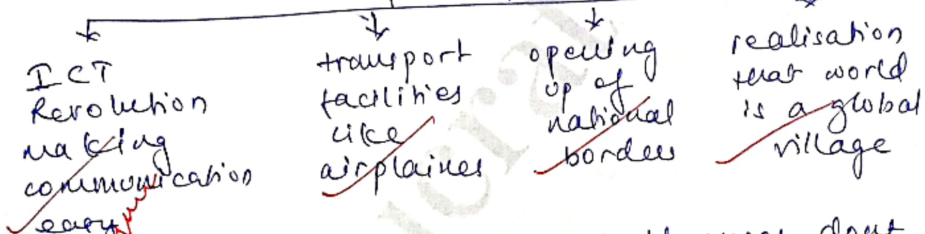 ICT
Revolution
making
communication
easy
transport
facilities
like
airplaines
opening
up of
national
borders
realisation
that world
is a global
village